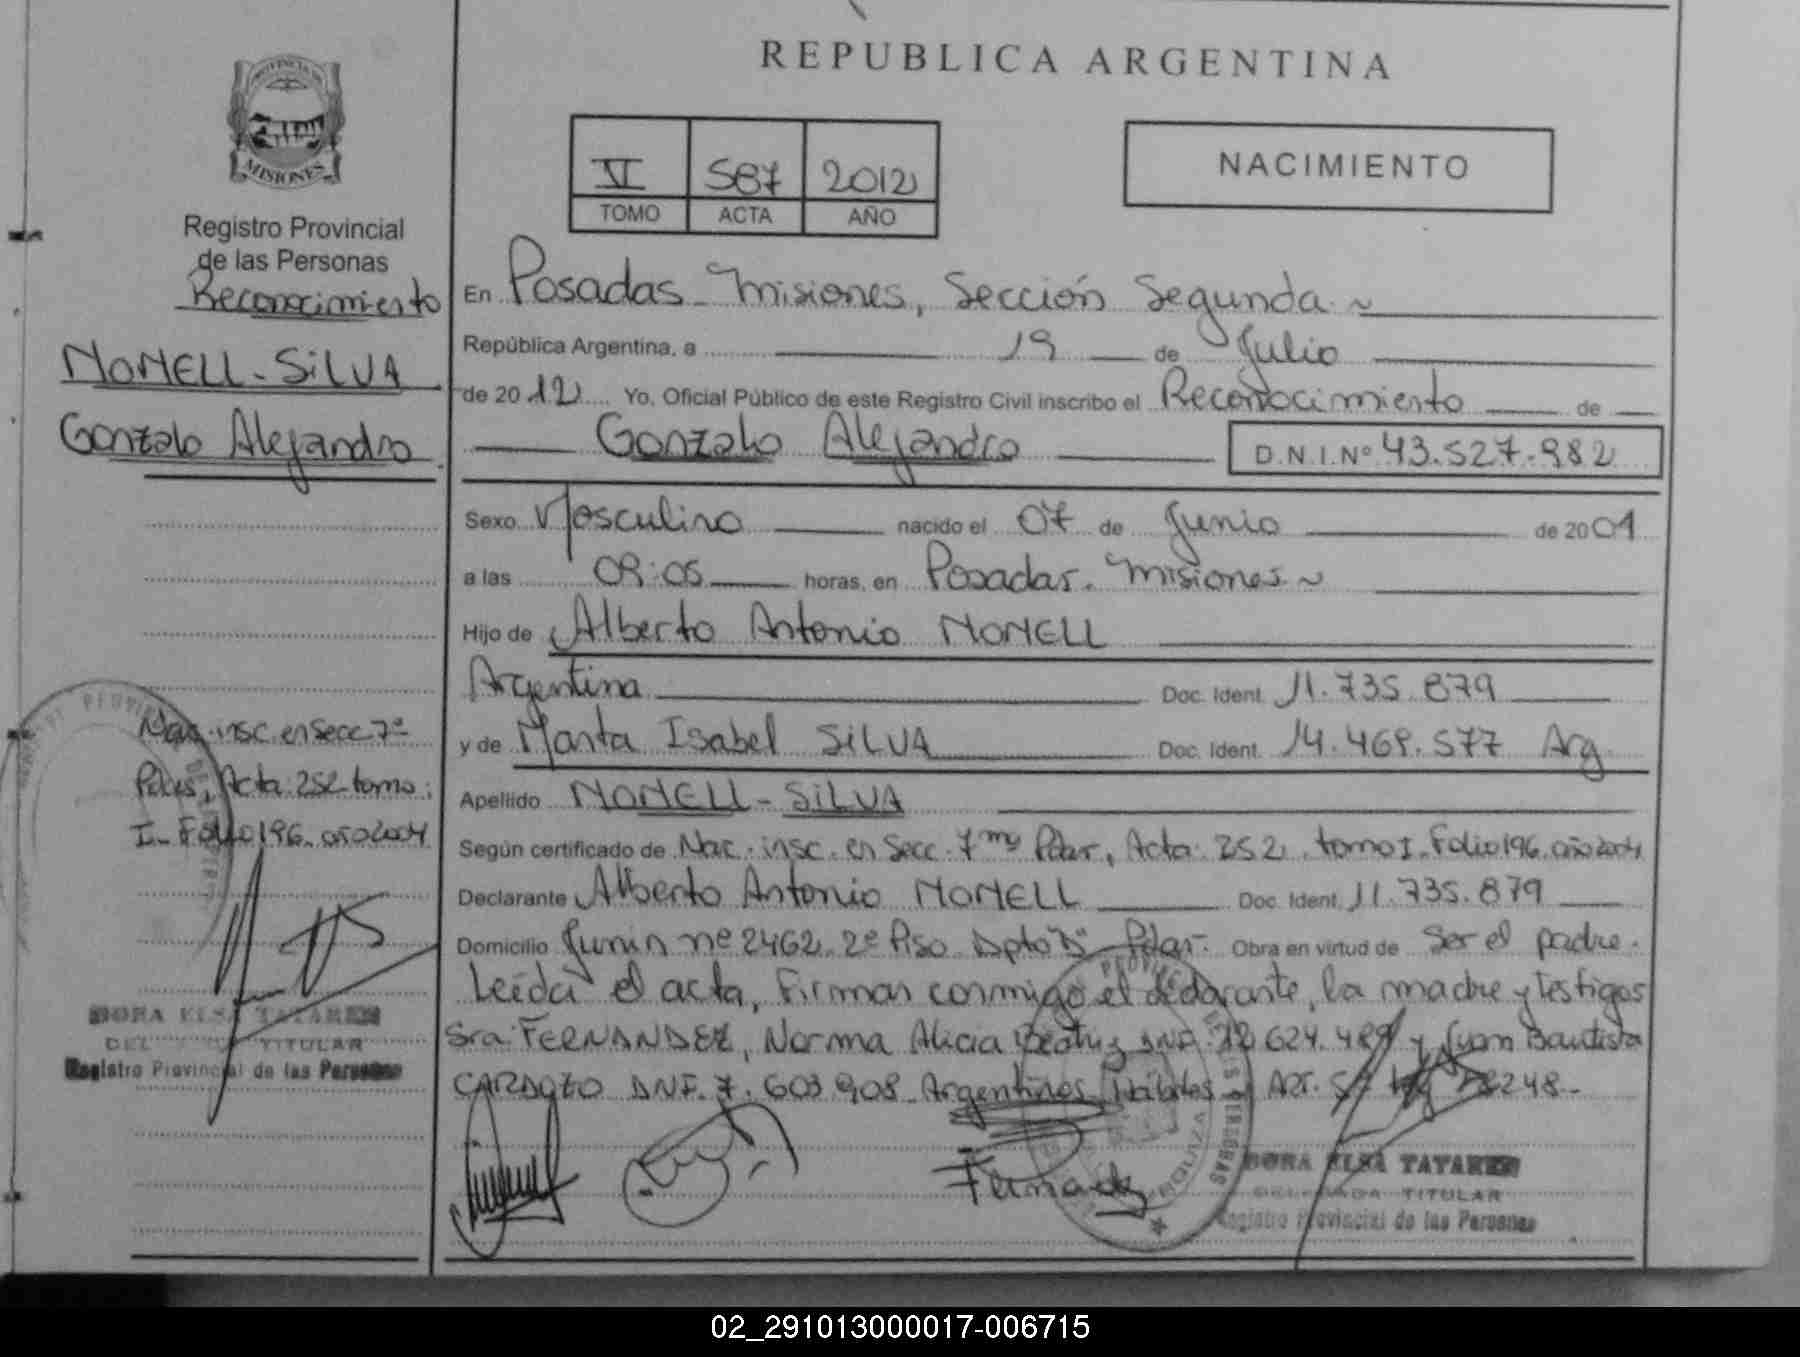 REPUBLICA ARGENTINA
PROVINCIA DE
MISIONES
Registro Provincial
de las Personas
Reconocimiento
MOMELL - SILVA
Gonzalo Alejandro
Nac. insc. en Secc 7ª
Pdas, Acta 252 tomo:
I - Folio 196 año 2004
DORA ELSA TATAREN
TITULAR
Registro Provincial de las Personas
VI 587 2012
TOMO ACTA AÑO
NACIMIENTO
En Posadas - Misiones, Sección Segunda ~
República Argentina, a 19 de Julio
de 2012 Yo, Oficial Público de este Registro Civil inscribo el Reconocimiento de
Gonzalo Alejandro D.N.I. Nº 43.527.982
Sexo Masculino nacido el 07 de Junio de 2001
a las 09:05 horas, en Posadas - Misiones ~
Hijo de Alberto Antonio MOMELL
Argentina Doc. Ident. 11.735.879
y de Marta Isabel SILVA Doc. Ident. 14.469.577 Arg
Apellido MOMELL - SILVA
Según certificado de Nac. insc. en Secc. 7ma Pdas, Acta 252 tomo I - Folio 196 año 2004
Declarante Alberto Antonio MOMELL Doc. Ident. 11.735.879
Domicilio Junin nº 2462 2º Piso Dpto "D" Pdas - Obra en virtud de ser el padre.
Leída el acta, Firman conmigo el declarante, la madre y testigos
Sra FERNANDEZ, Norma Alicia Beatriz 12.624.489 y Juan Bautista
CARDOZO DNI. 7.603.908 Argentinos Hábiles Art. 18248 -
Fernandez
DORA ELSA TATAREN
DELEGADA TITULAR
Registro Provincial de las Personas
02_291013000017-006715